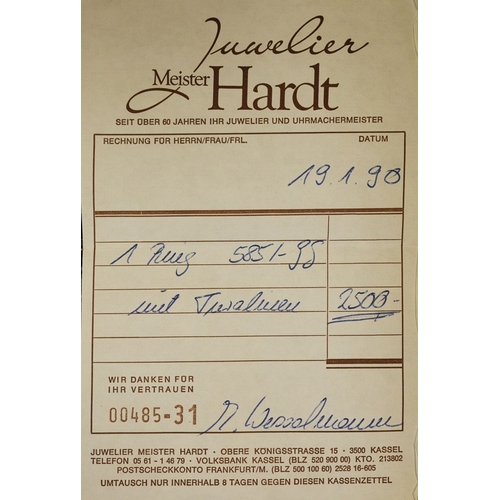 Juwelier
Meister Hardt
SEIT ÜBER 60 JAHREN IHR JUWELIER UND UHRMACHERMEISTER
RECHNUNG FÜR HERRN/FRAU/FRL. DATUM
19.1.90
1 Ring 585/-
mit 2500-
WIR DANKEN FÜR
IHR VERTRAUEN
00485-31
JUWELIER MEISTER HARDT · OBERE KÖNIGSSTRASSE 15 · 3500 KASSEL
TELEFON 05 61 - 1 46 79 · VOLKSBANK KASSEL (BLZ 520 900 00) KTO. 213802
POSTSCHECKKONTO FRANKFURT/M. (BLZ 500 100 60) 2528 16-605
UMTAUSCH NUR INNERHALB 8 TAGEN GEGEN DIESEN KASSENZETTEL